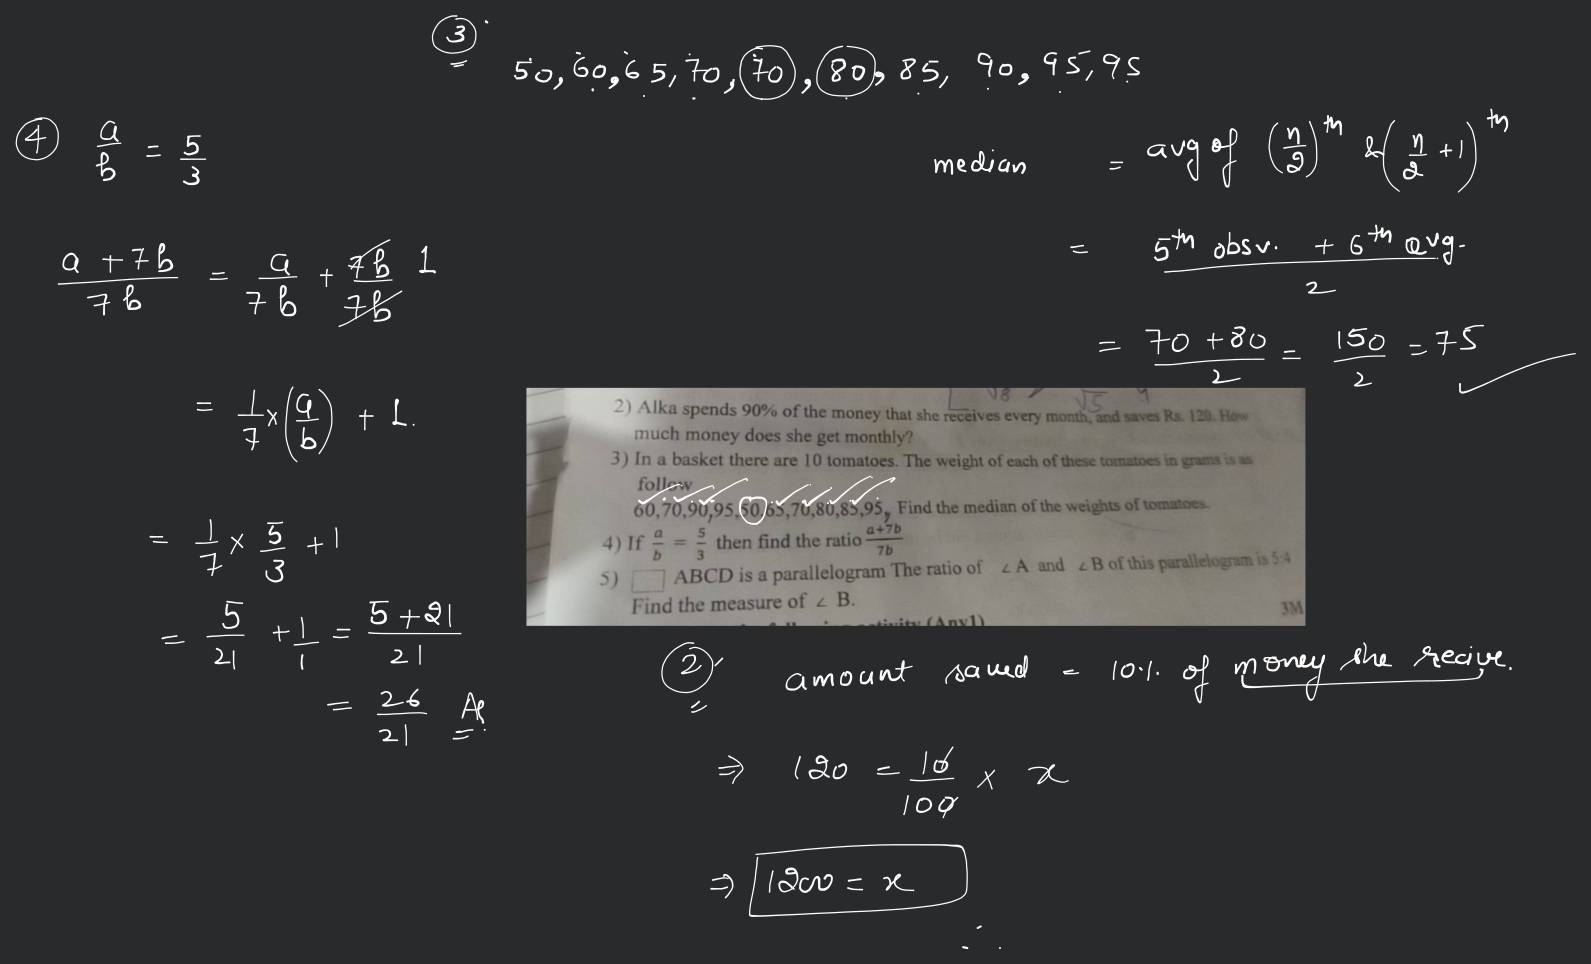 ③
50, 60, 65, 70, 70, 80, 85, 90, 95, 95
④ a/b = 5/3
median = avg of (n/2)th & (n/2 + 1)th
= 5th obsv. + 6th avg. / 2
= 70 + 80 / 2 = 150 / 2 = 75
a + 7b / 7b = a / 7b + 7b / 7b 1
= 1/7 × (a/b) + 1.
= 1/7 × 5/3 + 1
= 5/21 + 1/1 = 5 + 21 / 21
= 26 / 21
2) Alka spends 90% of the money that she receives every month, and saves Rs. 120. How
much money does she get monthly?
3) In a basket there are 10 tomatoes. The weight of each of these tomatoes in grams is as
follow
60,70,90,95,50,65,70,80,85,95, Find the median of the weights of tomatoes.
4) If a/b = 5/3 then find the ratio a+7b/7b
5) □ ABCD is a parallelogram The ratio of ∠A and ∠B of this parallelogram is 5:4
Find the measure of ∠ B.
3M
② amount saved = 10% of money she recive.
⇒ 120 = 10/100 × x
⇒ 1200 = x
∴